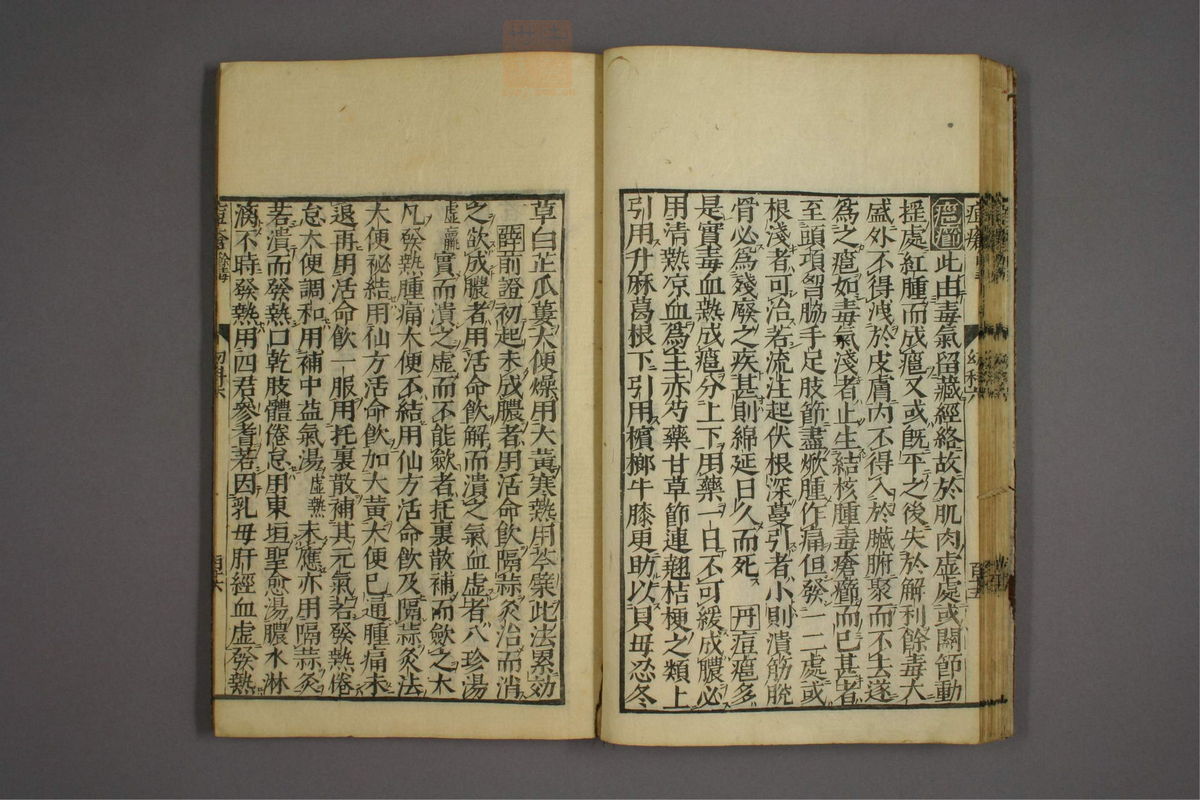 痘瘡
癰瘤此由毒氣留藏經絡故於肌肉虚處或關節動
揺處紅腫而成癰又或既平之後失於解利餘毒大
盛外不得洩於皮膚内不得入於臟腑聚而不去遂
爲之癰如毒氣淺者止生結核腫毒瘡癤而已甚者
至頭項胷脇手足肢節盡焮腫作痛但發一二處或
根淺者可治若流注起伏根深蔓引者小則潰筋脫
骨必爲殘廢之疾甚則綿延日久而死 丹痘癰多
是實毒血熱成癰分上下用藥一日不可緩成膿必
用清熱凉血爲主赤芍藥甘草節連翹桔梗之類上
引用升麻葛根下引用檳榔牛膝更助以貝毋忍冬
草白芷瓜蔞大便燥用大黄寒熱用芩檗此法累効
薛前證初起未成膿者用活命飲隔蒜灸治而消
之欲成膿者用活命飲解而潰之氣血虚者八珍湯
虚羸實而潰之虚而不能斂者托裏散補而斂之大
凡發熱腫痛大便不結用仙方活命飲及隔蒜灸法
大便秘結用仙方活命飲加大黄大便已通腫痛未
退再用活命飲一服用托裏散補其元氣若發熱倦
怠大便調和用補中益氣湯虚熱未應亦用隔蒜灸
若潰而發熱口乾肢體倦怠用東垣聖愈湯膿水淋
漓不時發熱用四君參耆若因乳毋肝經血虚發熱
痘瘡餘毒 幼科六